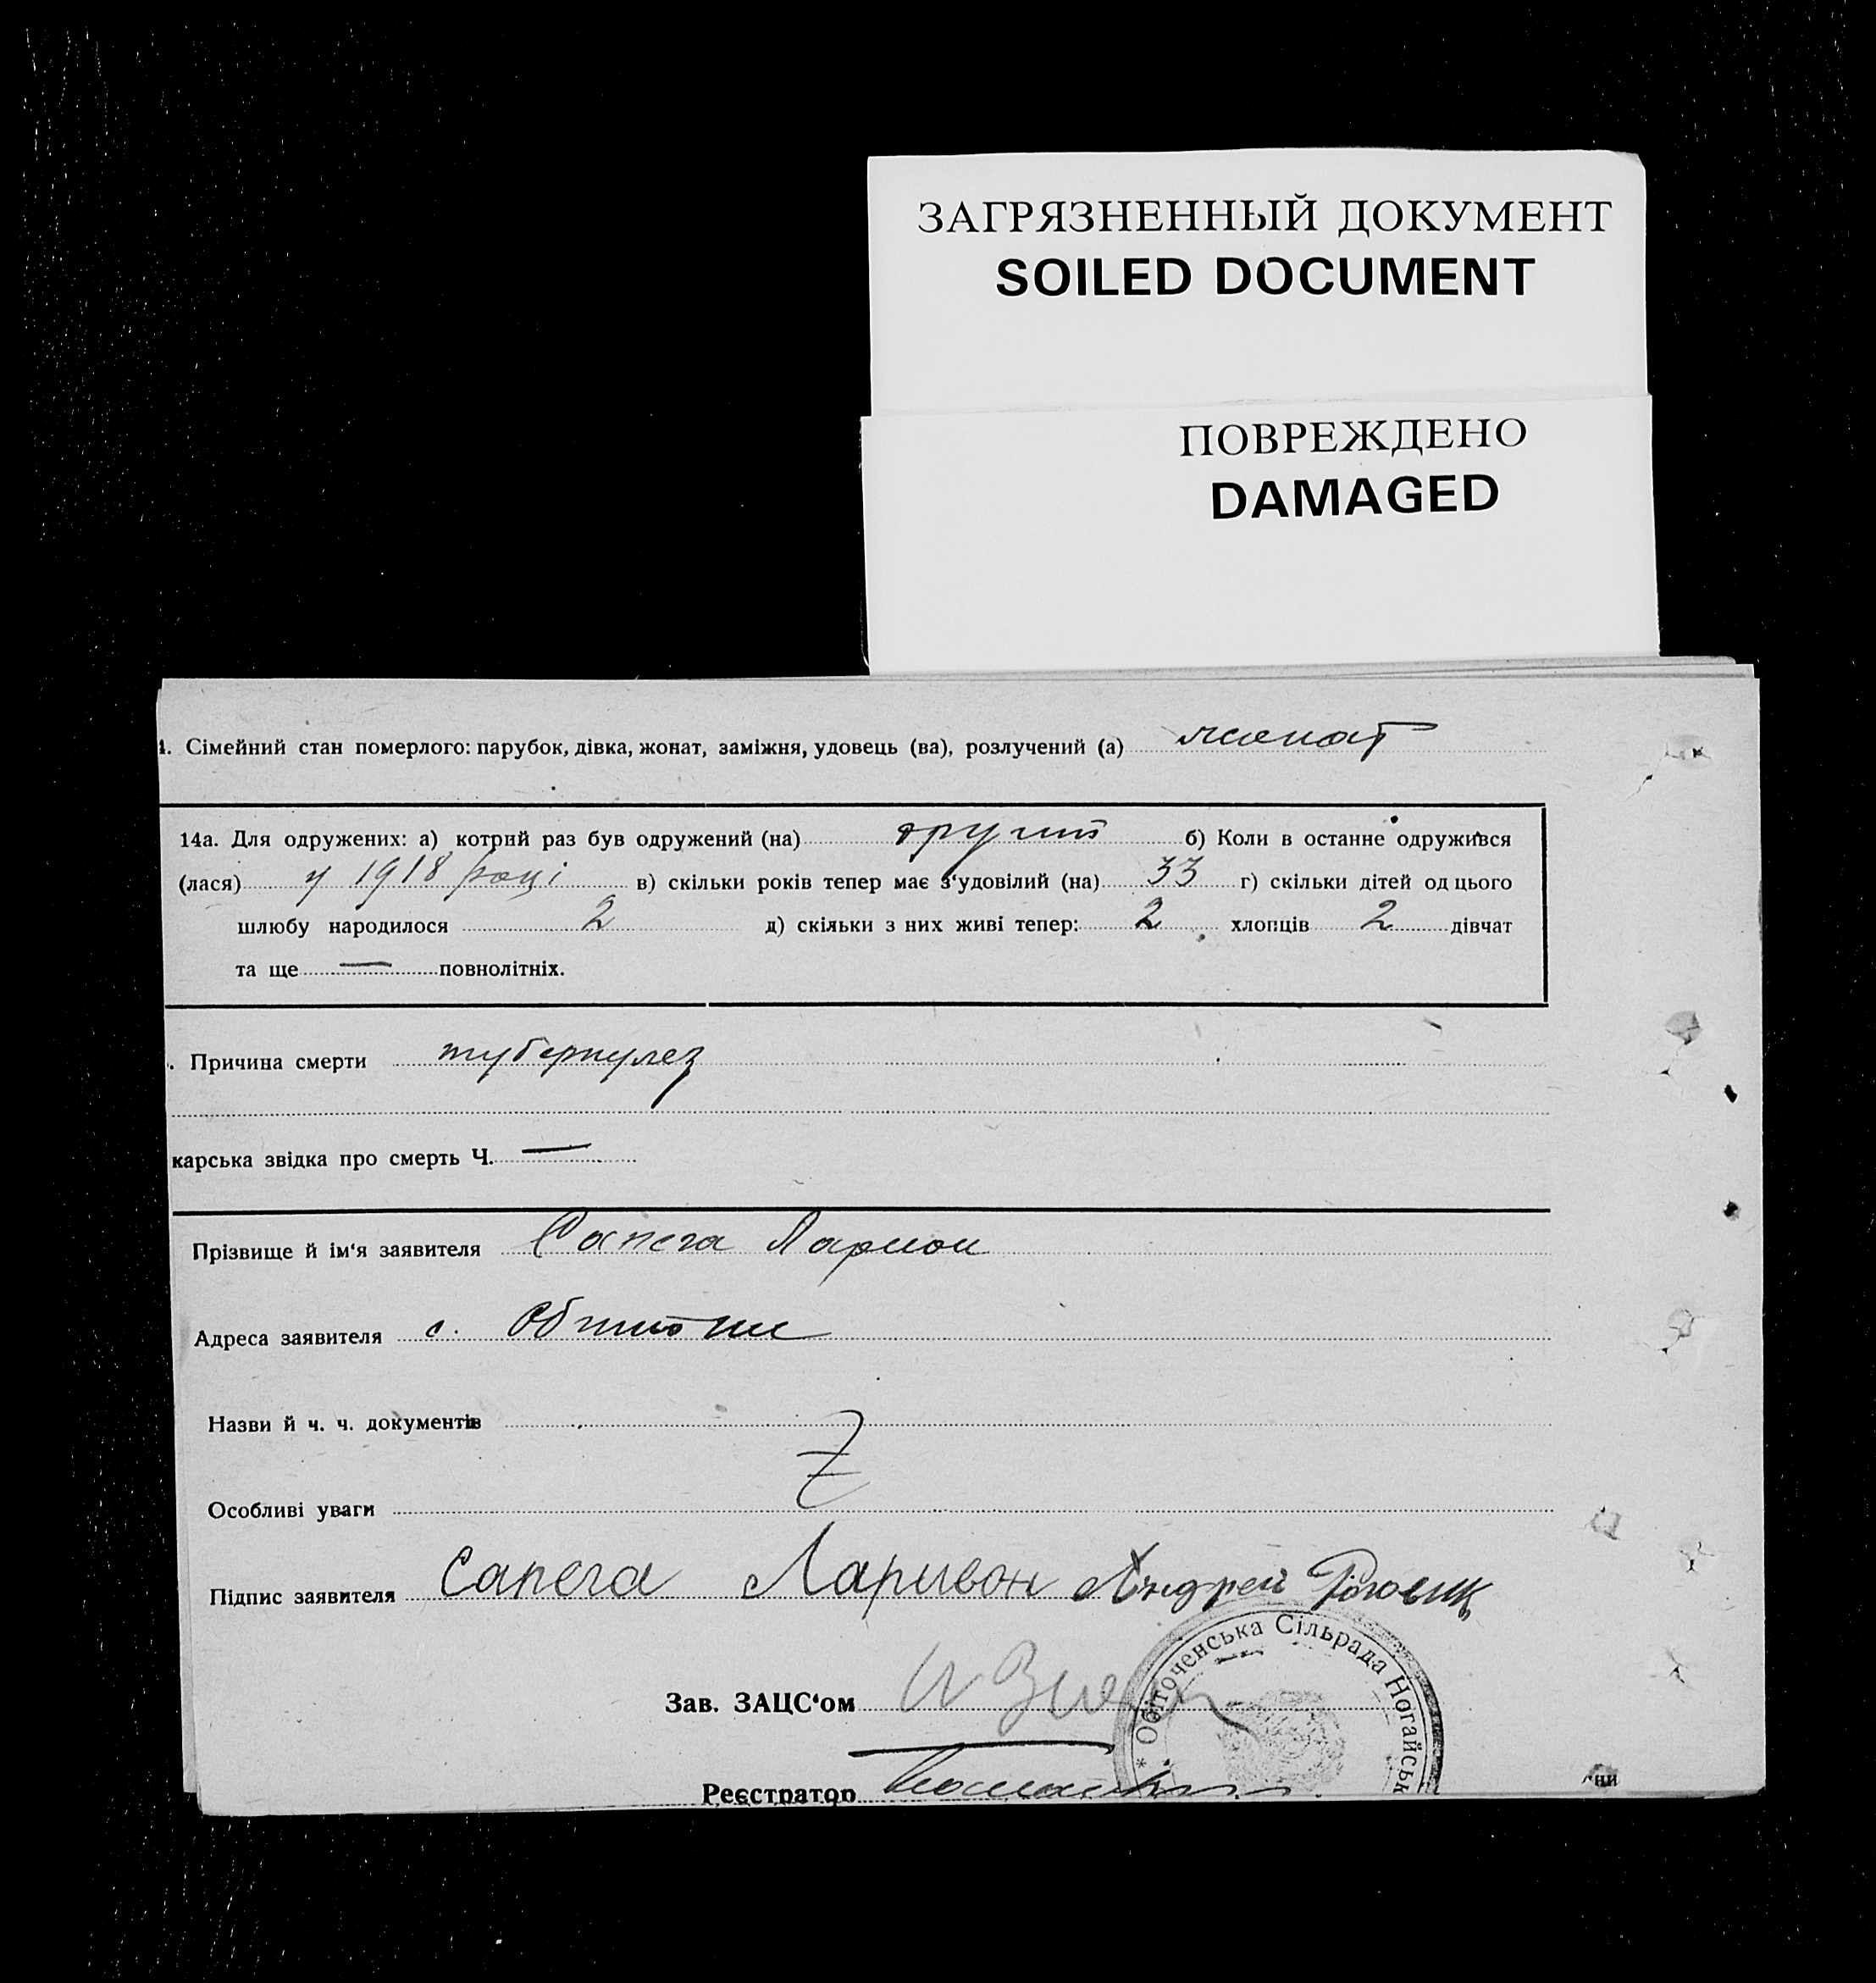 ЗАГРЯЗНЕННЫЙ ДОКУМЕНТ
SOILED DOCUMENT
ПОВРЕЖДЕНО
DAMAGED
Сімейний стан померлого: парубок, дівка, жонат, заміжня, удовець (ва), розлучений (а) жонат
14а. Для одружених: а) котрий раз був одружений (на) другий б) Коли в останне одружився
(лася) у 1918 році в) скільки років тепер має з'удовілий (на) 33 г) скільки дітей од цього
шлюбу народилося 2 д) скільки з них живі тепер: 2 хлопців 2 дівчат
та ще — повнолітніх.
Причина смерти туберкулез
карська звідка про смерть Ч. —
Прізвище й ім'я заявителя Сапега Ларион
Адреса заявителя с. Обиточне
Назви й ч. ч. документів
Особливі уваги
Підпис заявителя Сапега Ларивон Андрей
Обіточенська Сільрада Ногайськ
Зав. ЗАЦС'ом
Реєстратор